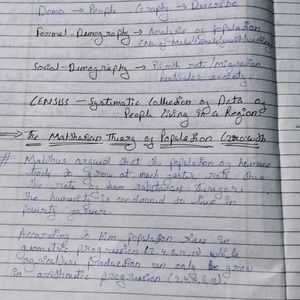 Demo → People Graphy → Describe
Formal - Demography → Analysis of population
Social - Demography → Birth rate / Migration
particular society
CENSUS - Systematic Collection of Data of
People living in a Region
→ The Malthusian Theory of Population Growth
# Malthus argued that the population of humans
tends to grow at much faster rate than
the rate of hum subsistence
the humanity is condemned to live in
poverty
According to him population rises in
geometric progression (2, 4, 8, 16, 32) while
agriculture production can only be grow
in arithmetic progression (2, 4, 6, 8, 10)